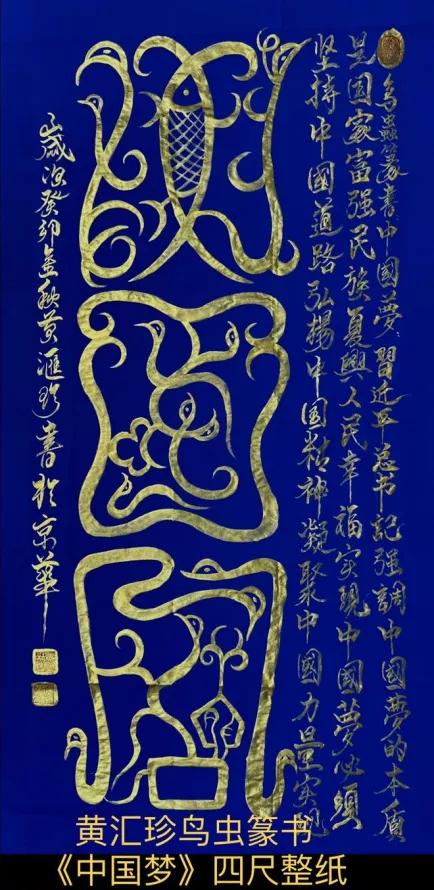 鸟蟲篆書中國夢習近平总书記强調中國夢的本质
是国家富强民族复興人民幸福实现中国夢必须
坚持中國道路弘揚中国精神凝聚中國力量实现
中國夢
歲次癸卯金秋黄滙珍書於京華
黄汇珍鸟虫篆书
《中国梦》四尺整纸